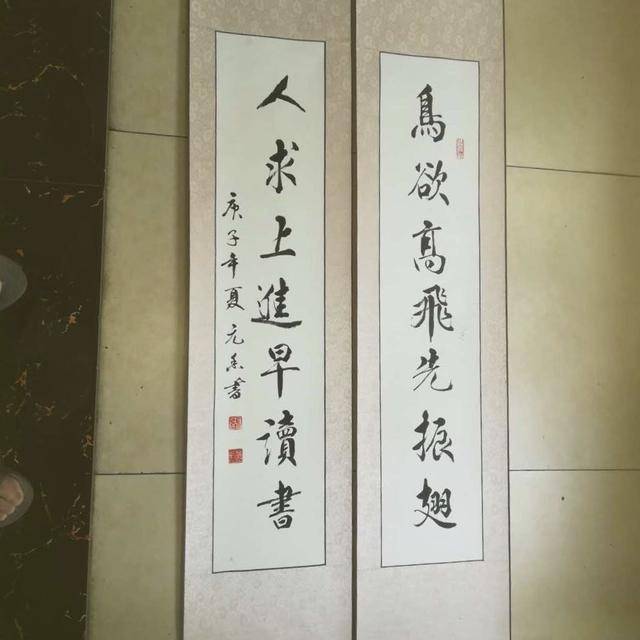 鳥欲高飛先振翅
人求上進早讀書
庚子年夏元春書